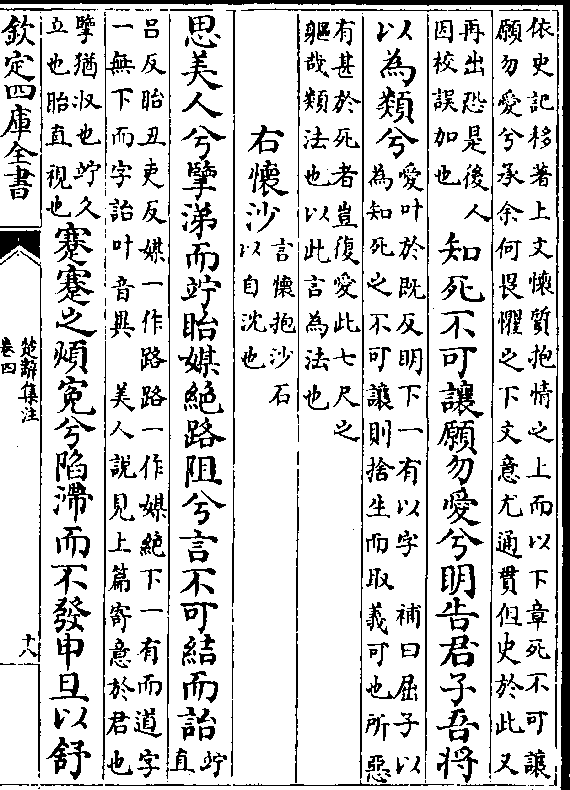 依史記移著上文懷質抱情之上而以下章死不可讓
願勿愛兮承余何畏懼之下文意尤通貫但史於此又
再出恐是後人
因校誤加也
知死不可讓願勿愛兮明告君子吾將
以為類兮
愛叶於既反明下一有以字 補曰屈子以
為知死之不可讓則捨生而取義可也所惡
有甚於死者豈復愛此七尺之
軀哉類法也以此言為法也
右懷沙
言懷抱沙石
以自沈也
思美人兮擥涕而竚眙媒絕路阻兮言不可結而詒
竚直
呂反眙丑吏反媒一作路路一作媒絕下一有而道字
一無下而字詒叶音異 美人說見上篇寄意於君也
擥猶收也竚久
立也眙直視也
蹇蹇之煩冤兮陷滯而不發申旦以舒
欽定四庫全書
楚辭集注
卷四
十八